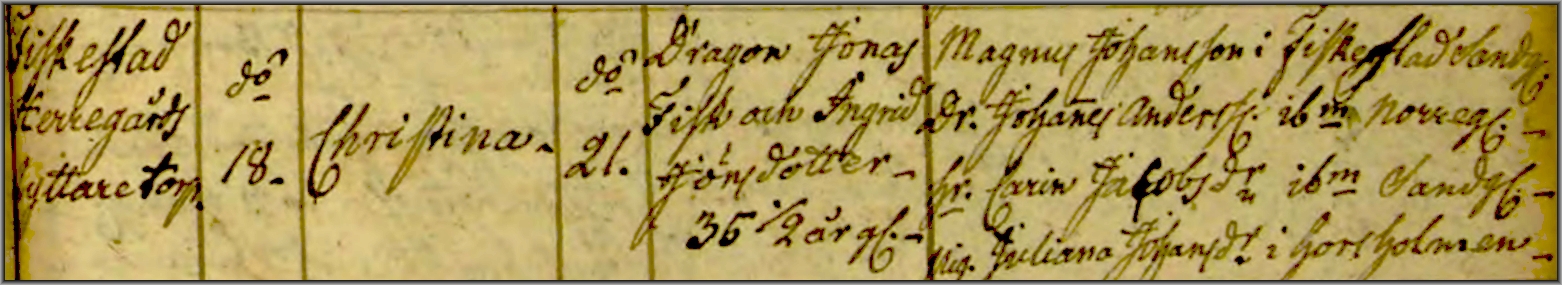 Fiskestad
Herregårds
Ryttaretorp.
do
18.
Christina.
do
21.
Dragon Jonas
Fisk och Ingrid
Jönsdotter
36 1/2 år gl.
Magnus Johansson i Fiskestad Sandg.
Dr. Johannes Anderss. ibm Norreg.
hr. Carin Jacobsdr ibm Sandg.
pig. Juliana Johansdr i Horsholmen